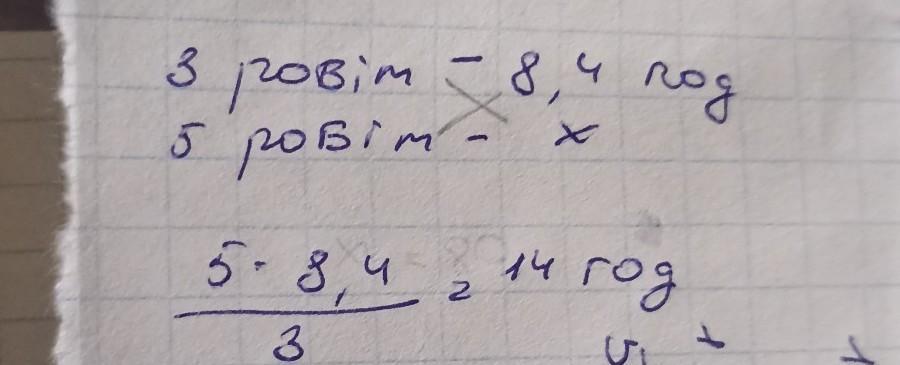 3 робіт - 8,4 год
5 робіт - x
5 · 8,4 / 3 = 14 год